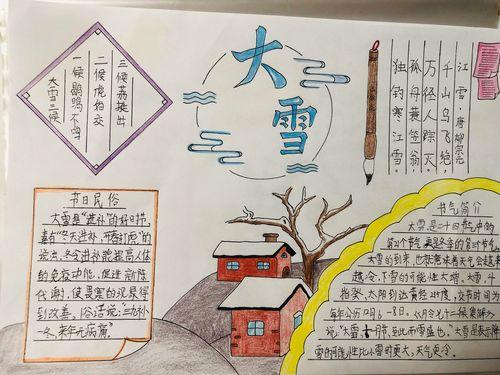 大雪
大雪三候
一候鹖鴠不鸣
二候虎始交
三候荔挺出
江雪·唐柳宗元
千山鸟飞绝,
万径人踪灭。
孤舟蓑笠翁,
独钓寒江雪。
节日民俗
大雪是"进补"的好时节,
素有"冬天进补,开春打虎"的
说法,冬令进补能提高人体
的免疫功能,促进新陈
代谢,使畏寒的现象得
到改善。俗话说:"三九补
一冬,来年无病痛"
节气简介
大雪,是二十四节气中的
大雪的到来,也就意味着天气会越来
越冷,下雪的可能性大增。大雪,斗
指癸,太阳到达黄经255度,交节时间为
每年公历12月6-8日。《月令七十二候集解》
说:"大雪,十一月节,至此而雪盛也。"大雪是表示降
雪的可能性比小雪时更大,天气更冷。